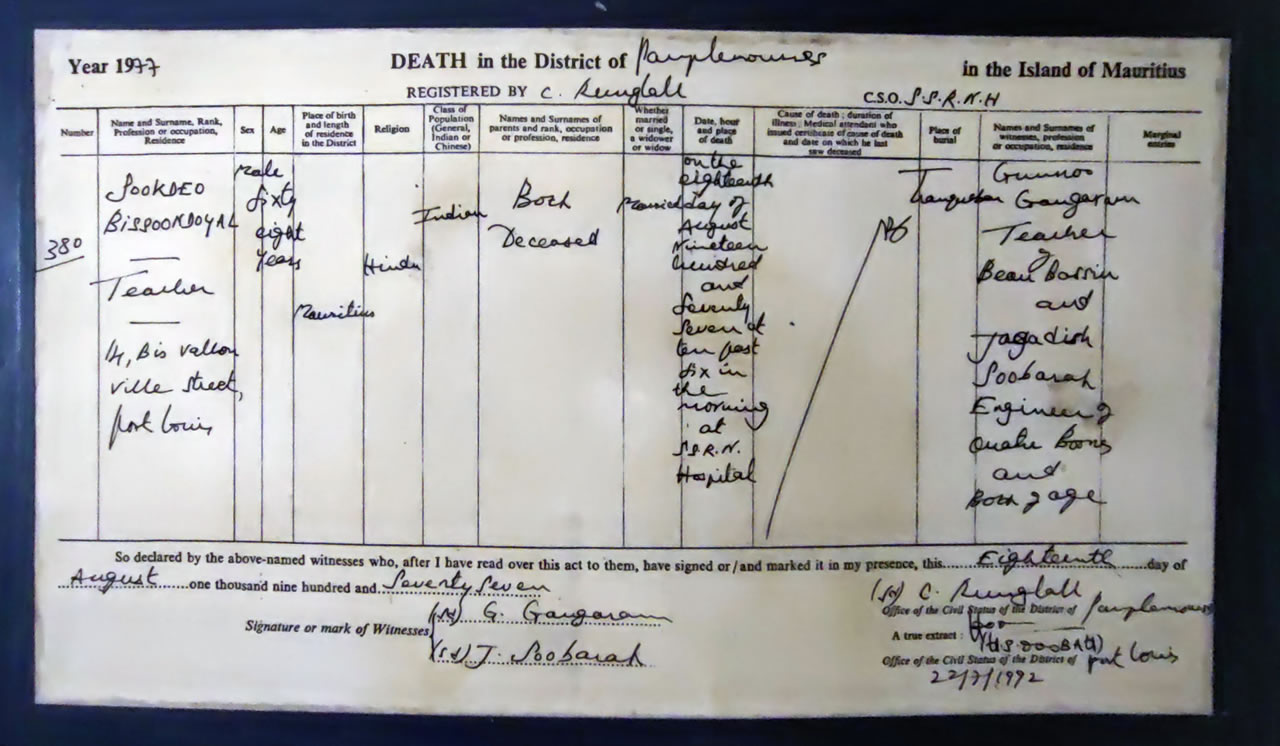 Year 1977
DEATH in the District of Pamplemousses
in the Island of Mauritius
REGISTERED BY C. Runglall
C.S.O. S.S.R.N.H
Number
Name and Surname, Rank,
Profession or occupation,
Residence
Sex
Age
Place of birth
and length
of residence
in the District
Religion
Class of
Population
(General,
Indian or
Chinese)
Names and Surnames of
parents and rank, occupation
or profession, residence
Whether
married
or single,
a widower
or widow
Date, hour
and place
of death
Cause of death; duration of
illness; Medical attendant who
issued certificate of cause of death
and date on which he last
saw deceased
Place of
burial
Names and Surnames of
witnesses, profession
or occupation, residence
Marginal
entries
380
SOOKDEO
BISSOONDOYAL
Teacher
14, Bis Vallon
ville street,
Port Louis
Male
Sixty
eight
years
Mauritius
Hindu
Indian
Both
Deceased
Married
on the
eighteenth
day of
August
Nineteen
hundred
and
Seventy
Seven at
ten past
six in
the
morning
at
S.S.R.N.
Hospital
Gunnoo
Gangaram
Teacher
of
Beau Bassin
and
Jagadish
Soobarah
Engineer of
Quatre Bornes
and
Both of age
So declared by the above-named witnesses who, after I have read over this act to them, have signed or/and marked it in my presence, this Eighteenth day of
August one thousand nine hundred and Seventy Seven
Signature or mark of Witnesses
(sd) G. Gangaram
(sd) J. Soobarah
(sd) C. Runglall
Office of the Civil Status of the District of Pamplemousses
A true extract:
Office of the Civil Status of the District of Port Louis
22/7/1992